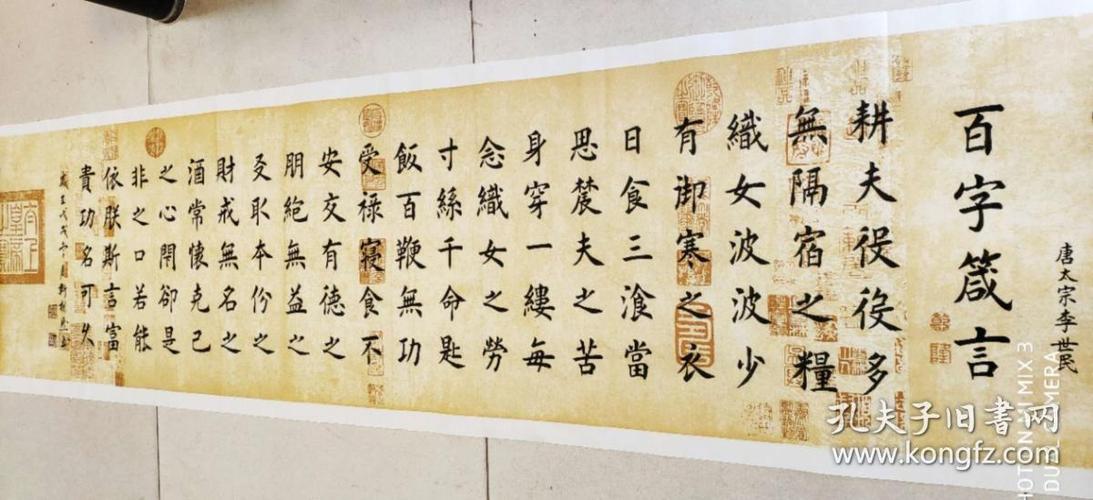 唐太宗李世民
百字箴言
耕夫役役多
無隔宿之糧
織女波波少
有御寒之衣
日食三飡當
思農夫之苦
身穿一縷每
念織女之勞
寸絲千命匙
飯百鞭無功
受祿寢食不
安交有德之
朋絶無益之
友取本份之
財戒無名之
酒常懷克己
之心閉卻是
非之口若能
依朕斯言富
貴功名可久
孔夫子旧書网
www.kongfz.com
HOT ON MI MIX 3
DUAL CAMERA